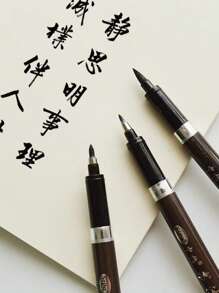 静思明事理
樸伴人